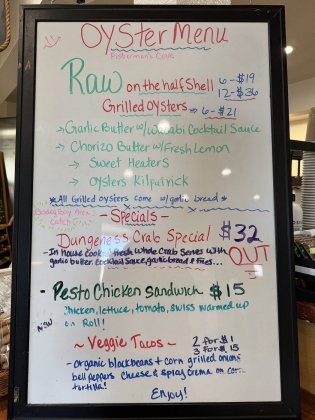 OYSTER MENU
Fisherman's Cove
Raw on the half Shell 6-$19
12-$36
Grilled Oysters → 6-$21
→ Garlic Butter w/Wasabi Cocktail Sauce
→ Chorizo Butter w/Fresh Lemon
→ Sweet Heaters
→ Oysters Kilpatrick
*All Grilled oysters come w/garlic bread*
Bodega Bay Area
Catch
- Specials -
Dungeness Crab Special $32
OUT
- In House Cooked fresh whole Crab Serves with
garlic butter, Cocktail Sauce, garlic bread & fries...
- Pesto Chicken Sandwich $15
Chicken, lettuce, tomato, swiss warmed up
on Roll!
NEW
~ Veggie Tacos ~ 2 for $1
3 for $15
- organic black beans + corn grilled onions
bell peppers cheese & spicy crema on corn
tortilla!
Enjoy!